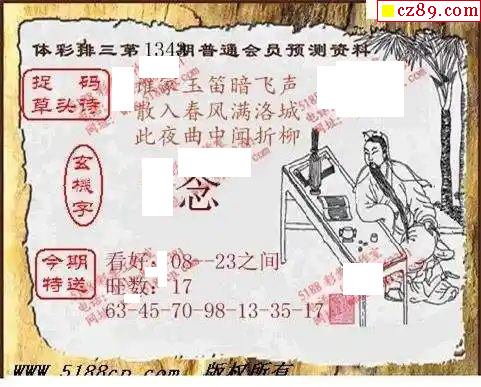 cz89.com
体彩排三第134期普通会员预测资料
捉码
草头诗
玉笛暗飞声
散入春风满洛城
此夜曲中闻折柳
玄機字
念
今期
特送
看好：08--23之间
旺数：17
63-45-70-98-13-35-17
www.5188cp.com 版权所有